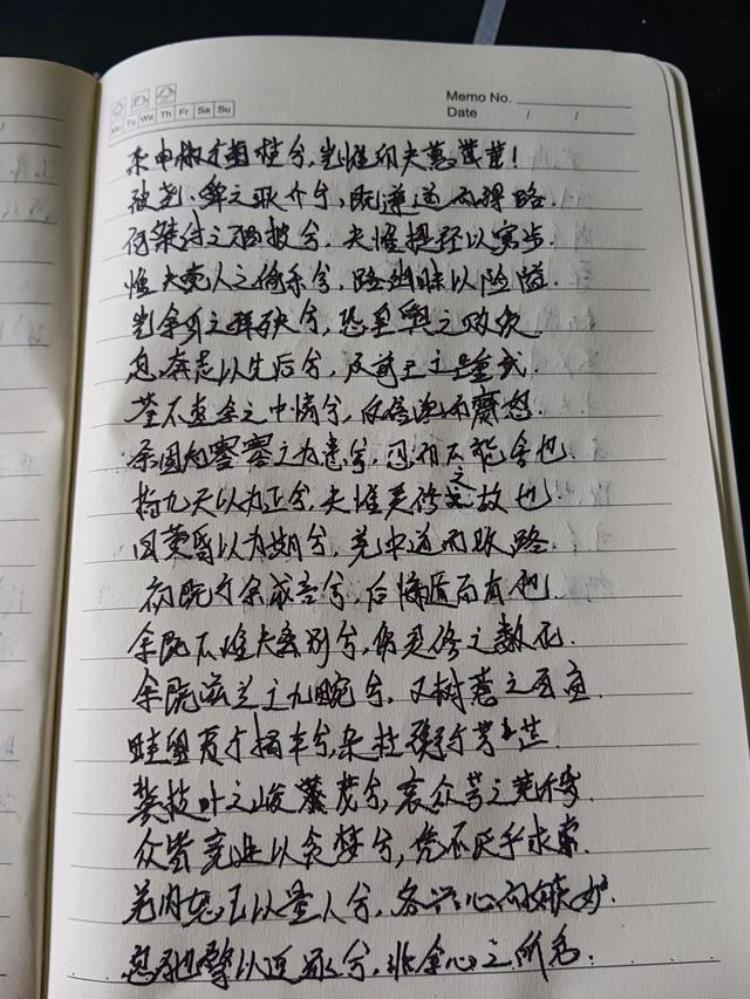 Memo No.
Date / /
Mo Tu We Th Fr Sa Su
杂申椒与菌桂兮，岂惟纫夫蕙茝！
彼尧、舜之耿介兮，既遵道而得路．
何桀纣之猖披兮，夫惟捷径以窘步．
惟夫党人之偷乐兮，路幽昧以险隘．
岂余身之殚殃兮，恐皇舆之败绩．
忽奔走以先后兮，及前王之踵武．
荃不查余之中情兮，反信谗而齌怒．
余固知謇謇之为患兮，忍而不能舍也．
指九天以为正兮，夫惟灵修之故也．
曰黄昏以为期兮，羌中道而改路．
初既与余成言兮，后悔遁而有他．
余既不难夫离别兮，伤灵修之数化．
余既滋兰之九畹兮，又树蕙之百亩．
畦留夷与揭车兮，杂杜蘅与芳芷．
冀枝叶之峻茂兮，哀众芳之芜秽．
众皆竞进以贪婪兮，凭不厌乎求索．
羌内恕己以量人兮，各兴心而嫉妒．
忽驰骛以追逐兮，非余心之所急．